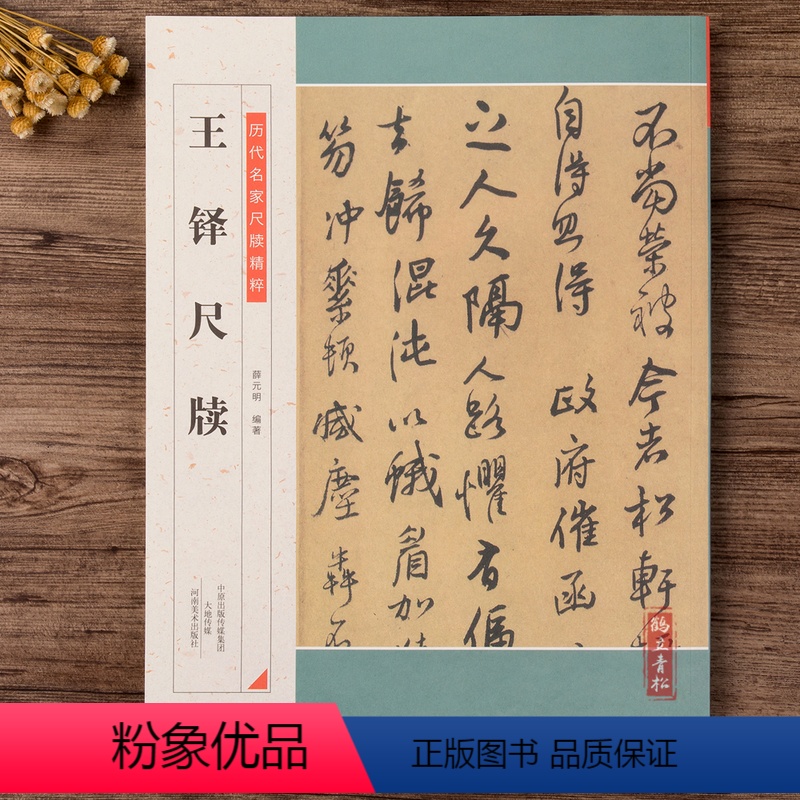 王铎尺牍
历代名家尺牍精粹
薛元明 编著
中原出版传媒集团
大地传媒
河南美术出版社
不当荣被今者松轩
自得且得 政府催函
之人久隔人路惧有偏
去餙混沌以蛾眉加
笏冲繁顿臧尘犇不
鹤立青松
粉象优品
正版图书 品质保证